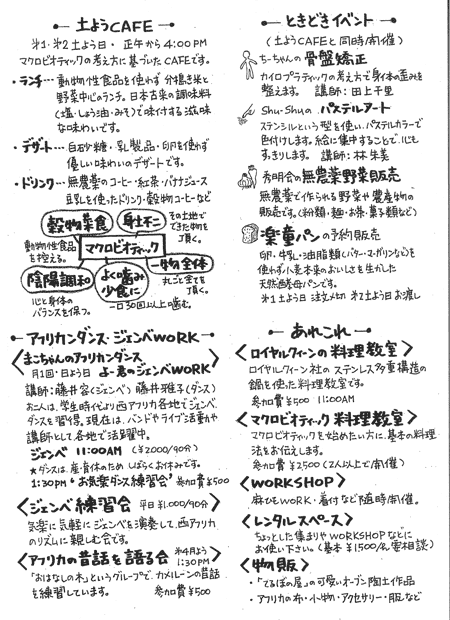 土ようCAFE
第1・第2土よう日・正午から4:00PM
マクロビオティックの考え方に基づいたCAFEです。
・ランチ…動物性食品を使わず分搗き米と
野菜中心のランチ。日本古来の調味料
(塩・しょう油・みそ)で味付する滋味
な味わいです。
・デザート…白砂糖・乳製品・卵を使わず
優しい味わいのデザートです。
・ドリンク…無農薬のコーヒー・紅茶・バナナジュース
豆乳を使ったドリンク・穀物コーヒーなど
穀物菜食
身土不二
その土地で
できた物を
頂く。
動物性食品
を控える。
マクロビオティック
一物全体
丸ごと全てを
頂く。
陰陽調和
よく噛み
少食に
心と身体の
バランスを保つ。
一口30回以上噛む。
アフリカンダンス・ジェンベWORK
〈まこちゃんのアフリカンダンス
月1回・日よう日 よー君のジェンベWORK〉
講師:藤井容(ジェンベ)藤井雅子(ダンス)
お二人は、学生時代より西アフリカ各地でジェンベ、
ダンスを習得。現在は、バンドやライブ活動や
講師として各地で活躍中。
ジェンベ 11:00AM (¥2000/90分)
★ダンスは、産・育休のためしばらくお休みです。
1:30PM "お気楽ダンス練習会" 参加費¥500
〈ジェンベ練習会〉平日¥1,000/90分
気楽に気軽にジェンベを演奏して、西アフリカ
のリズムに親しむ会です。
〈アフリカの昔話を語る会〉第4月よう
1:30PM
「おはなしの木」というグループで、カメルーンの昔話
を練習しています。 参加費¥500
ときどきイベント
(土ようCAFEと同時開催)
ちーちゃんの骨盤矯正
カイロプラティックの考え方で身体の歪みを
整えます。 講師:田上千里
Shu-Shuのパステルアート
ステンシルという型を使い、パステルカラーで
色付けします。絵に集中することで、心も
すっきりします。 講師:林朱美
秀明会の無農薬野菜販売
無農薬で作られる野菜や農産物の
販売です。(粉類・麺・お茶・菓子類など)
楽童パンの予約販売
卵・牛乳・油脂類(バター・マーガリンなど)を
使わず小麦本来のおいしさを生かした
天然酵母パンです。
第1土よう日 注文〆切 第2土よう日お渡し
あれこれ
〈ロイヤルクィーンの料理教室〉
ロイヤルクィーン社のステンレス多重構造の
鍋を使った料理教室です。
参加費¥500 11:00AM
〈マクロビオティック料理教室〉
マクロビオティックを始めたい方に、基本の料理
法をお伝えします。
参加費¥2500(2人以上で開催)
〈WORKSHOP〉
麻ひもWORK・着付など随時開催。
〈レンタルスペース〉
ちょっとした集まりやWORKSHOPなどに
お使い下さい。(基本¥1500/h 要相談)
〈物販〉
・「てるぼの屋」の可愛いオーブン陶土作品
・アフリカの布・小物・アクセサリー・服など